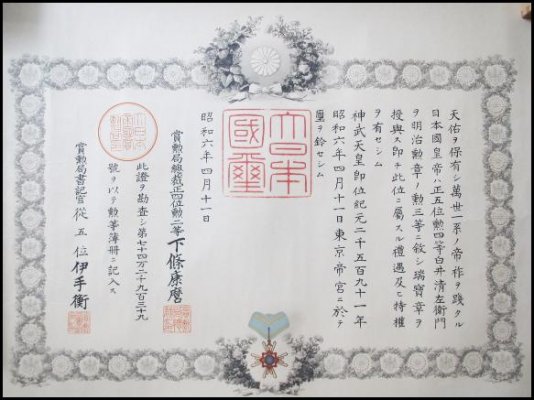 天佑ヲ保有シ萬世一系ノ帝祚ヲ踐タル
日本國皇帝ハ正五位勲四等臼井清左衛門
ヲ明治勲章ノ勲三等ニ敍シ瑞寶章ヲ
授與ス即チ此位ニ屬スル禮遇及ヒ特權
ヲ有セシム
神武天皇即位紀元二千五百九十一年
昭和六年四月十一日東京帝宮ニ於テ
璽ヲ鈐セシム
大日本國璽
昭和六年四月十一日
賞勲局總裁正四位勲二等下條康麿
此證ヲ勘査シ第七十四万二千九百三十九
號ヲ以テ勲等簿冊ニ記入ス
賞勲局書記官從五位伊手衡